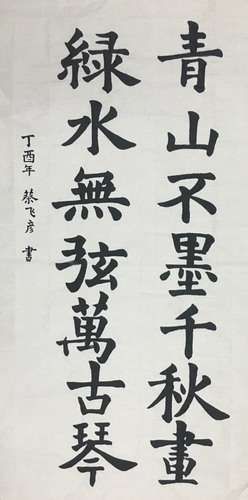 青山不墨千秋畫
綠水無弦萬古琴
丁酉年 蔡飞彦 書